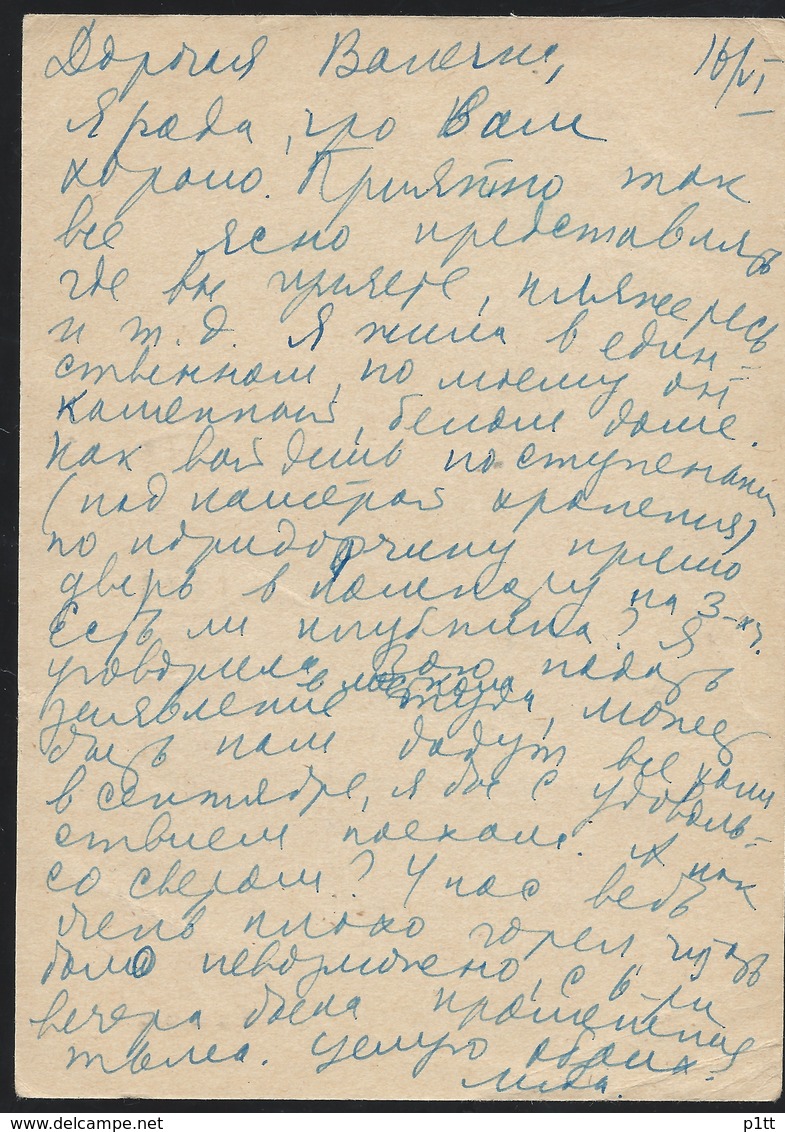 Дорогая Валечка, 16/VI
Я рада, что Вам
хорошо. Приятно так
все ясно представлять
где вы гуляете, пляжетесь
и т.д. Я жила в един-
ственном, по моему
каменной, белом доме.
как войдешь по ступенькам
(под камерой хранения)
по коридорчику прямо
дверь в комнату на 3-их.
Есть ли клубника? Я
уговорила Зою подать
заявление в
туда, может
быть нам дадут
в сентябре, я бы с удоволь-
ствием поехала. А как
со светом? У нас ведь
очень плохо горел, читать
было невозможно, с 6-ти
вечера была
тьма. Целую обоих.